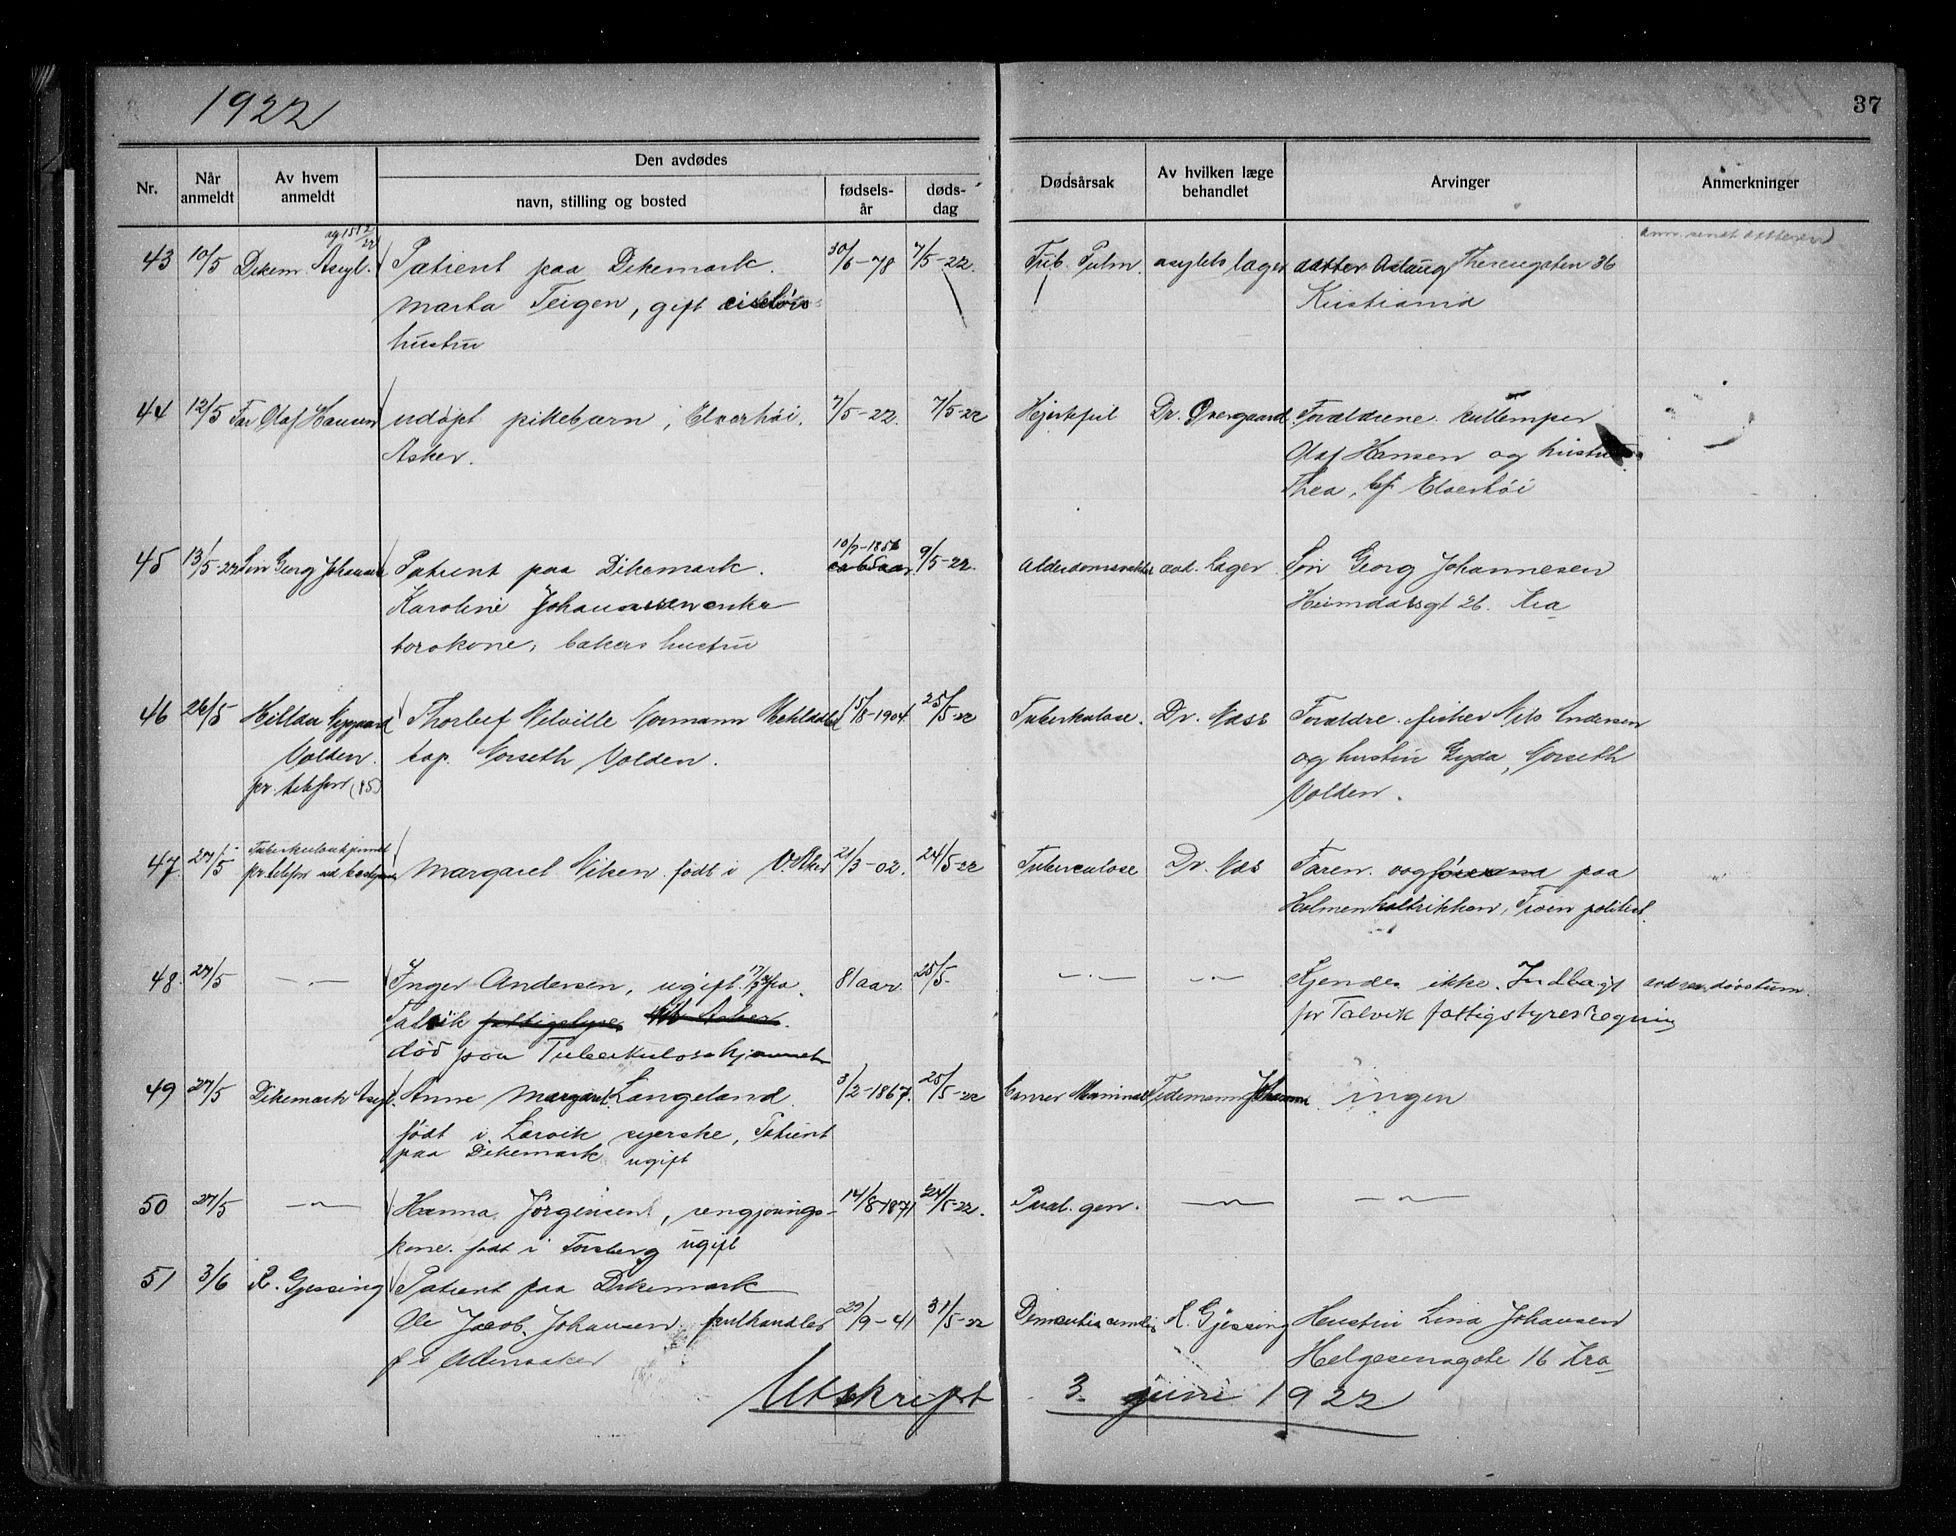 1922
37
Nr.
Når anmeldt
Av hvem anmeldt
Den avdødes
navn, stilling og bosted
fødselsår
dødsdag
Dødsårsak
Av hvilken læge behandlet
Arvinger
Anmerkninger
43 10/5 Dikem. Asyl. Patient paa Dikemark. 30/6-78 7/5-22. Tub. Pulm. asylets læger datter Aslaug Theresgaten 36
Marta Teigen, gift Kristiania
hustru
44 12/5 Far Olaf Hansen udøpt pikebarn, Elverhøi, 7/5-22. 7/5-22 Hjertefeil Dr. Øvergaard Forældrene
Asker. Olaf Hansen og hustru
Thea, Elverhöi
45 13/5-22 Søn Georg Johannsen Patient paa Dikemark. 10/7-185 9/5-22. Alderdomssvakhet Læger Søn Georg Johannesen
Karoline Heimdalsgt 26. Kra
bakers hustru
46 26/5 Hilda Nygaard Thorleif Melville Normann 15/8-1904 25/5-22 Tuberkulose. Dr. Næss Forældre. fisker Nils Andersen
Volden. Norseth Volden. og hustru Gyda, Norseth
pr. telefon Volden.
47 27/5 Tuberkulosehjemmet Margaret Nilsen født i V. Aker 21/3-02. 24/5-22 Tuberculose Dr. Næs Faren. paa
pr. telefon Holmenkol
48. 27/5 — " — Inger Andersen, ugift. fra 81 aar. 25/5. — " — — " — Kjendes ikke. Indlagt
Talvik pr Talvik fattigstyres Regning
død paa Tuberkulosehjemmet
49 27/5 Dikemark Asyl. Anne Margaret Langeland. 3/2-1867. 25/5-22 Cancer Tidemann Johannsen ingen
født i Larvik, syerske, Patient
paa Dikemark ugift
50 27/5 — " — Hanna Jørgensen, rengjørings- 14/8-1871 24/5-22. Paral. gen. — " — — " —
kone. født i Tønsberg ugift
51 3/6 R. Gjessing Patient paa Dikemark
Ole Jacob. Johansen. 29/9-41 31/5-22 Dementia senilis R. Gjessing Hustru Lina Johansen
f. i Helgesensgate 16 Kra
Utskrift 3. juni 1922